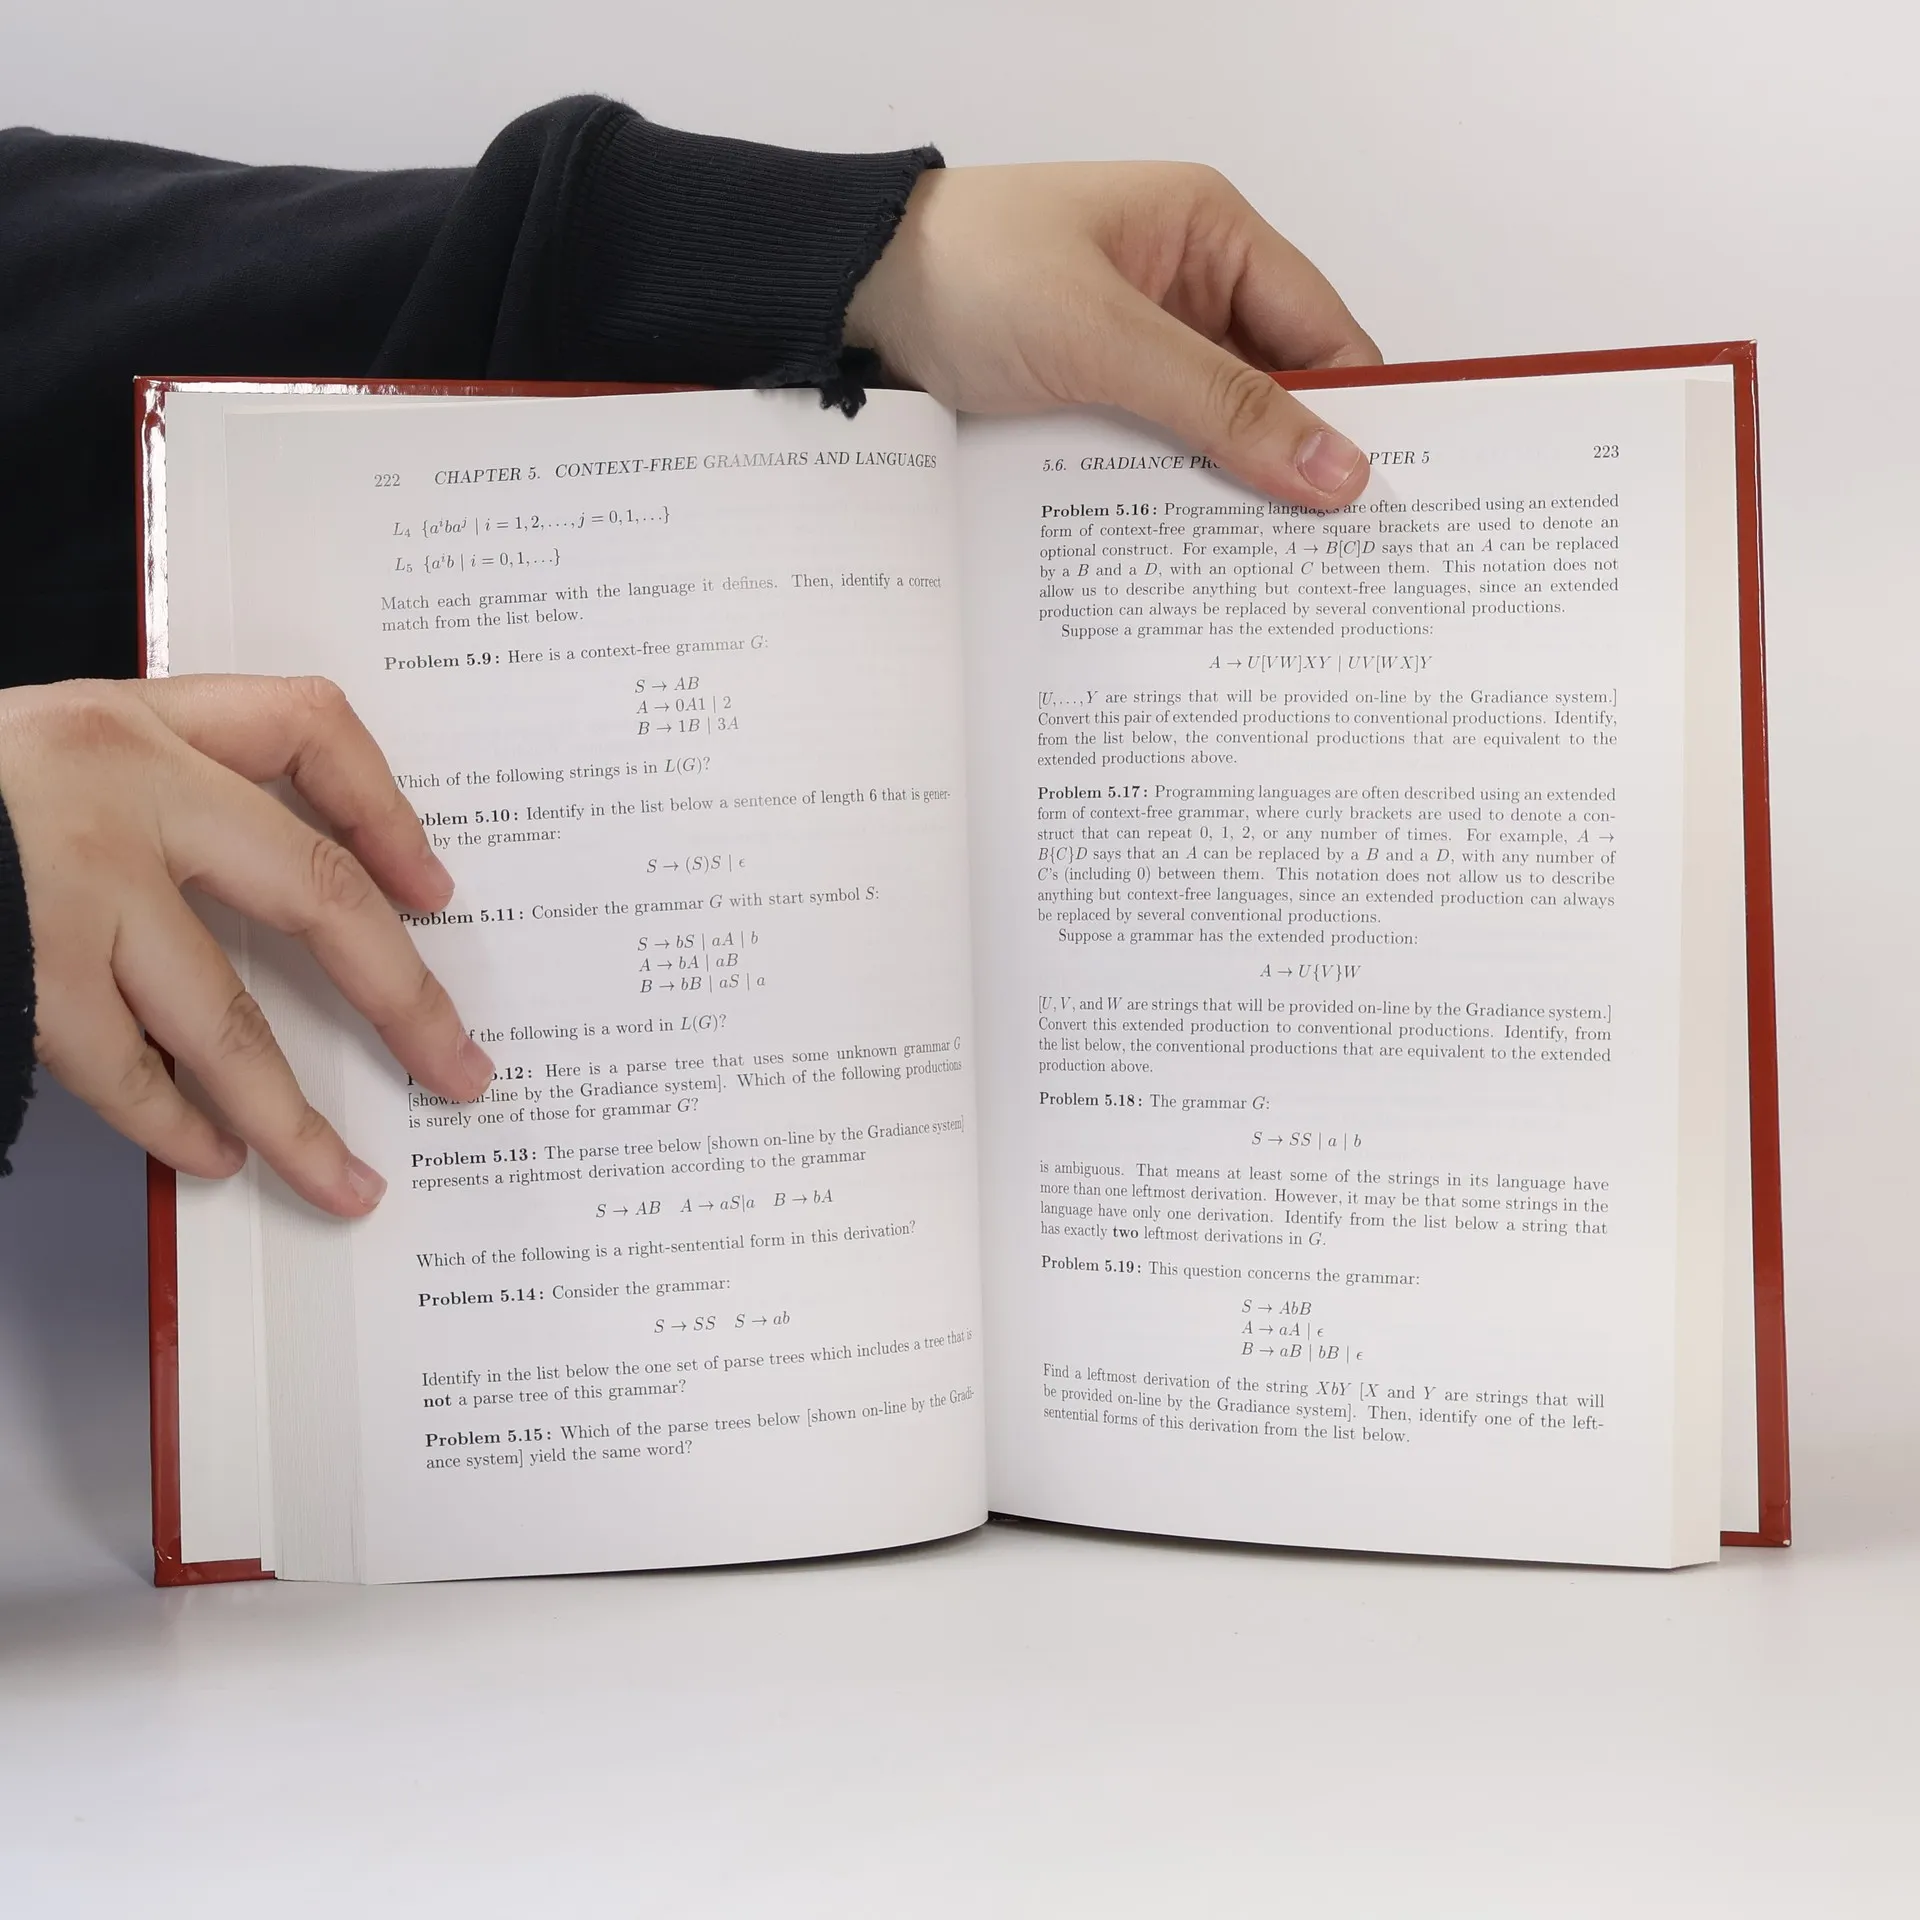 222 CHAPTER 5. CONTEXT-FREE GRAMMARS AND LANGUAGES
L₄ {aⁱbaʲ | i = 1, 2, . . . , j = 0, 1, . . .}
L₅ {aⁱb | i = 0, 1, . . .}
Match each grammar with the language it defines. Then, identify a correct
match from the list below.
Problem 5.9: Here is a context-free grammar G:
S → AB
A → 0A1 | 2
B → 1B | 3A
Which of the following strings is in L(G)?
5.10: Identify in the list below a sentence of length 6 that is gener-
by the grammar:
S → (S)S | ϵ
Problem 5.11: Consider the grammar G with start symbol S:
S → bS | aA | b
A → bA | aB
B → bB | aS | a
the following is a word in L(G)?
.12: Here is a parse tree that uses some unknown grammar G
[shown on-line by the Gradiance system]. Which of the following productions
is surely one of those for grammar G?
Problem 5.13: The parse tree below [shown on-line by the Gradiance system]
represents a rightmost derivation according to the grammar
S → AB A → aS|a B → bA
Which of the following is a right-sentential form in this derivation?
Problem 5.14: Consider the grammar:
S → SS S → ab
Identify in the list below the one set of parse trees which includes a tree that is
not a parse tree of this grammar?
Problem 5.15: Which of the parse trees below [shown on-line by the Gradi-
ance system] yield the same word?
5.6. GRADIANCE 5 223
Problem 5.16: Programming languages are often described using an extended
form of context-free grammar, where square brackets are used to denote an
optional construct. For example, A → B[C]D says that an A can be replaced
by a B and a D, with an optional C between them. This notation does not
allow us to describe anything but context-free languages, since an extended
production can always be replaced by several conventional productions.
Suppose a grammar has the extended productions:
A → U[VW]XY | UV[WX]Y
[U, . . . , Y are strings that will be provided on-line by the Gradiance system.]
Convert this pair of extended productions to conventional productions. Identify,
from the list below, the conventional productions that are equivalent to the
extended productions above.
Problem 5.17: Programming languages are often described using an extended
form of context-free grammar, where curly brackets are used to denote a con-
struct that can repeat 0, 1, 2, or any number of times. For example, A →
B{C}D says that an A can be replaced by a B and a D, with any number of
C's (including 0) between them. This notation does not allow us to describe
anything but context-free languages, since an extended production can always
be replaced by several conventional productions.
Suppose a grammar has the extended production:
A → U{V}W
[U, V, and W are strings that will be provided on-line by the Gradiance system.]
Convert this extended production to conventional productions. Identify, from
the list below, the conventional productions that are equivalent to the extended
production above.
Problem 5.18: The grammar G:
S → SS | a | b
is ambiguous. That means at least some of the strings in its language have
more than one leftmost derivation. However, it may be that some strings in the
language have only one derivation. Identify from the list below a string that
has exactly two leftmost derivations in G.
Problem 5.19: This question concerns the grammar:
S → AbB
A → aA | ϵ
B → aB | bB | ϵ
Find a leftmost derivation of the string XbY [X and Y are strings that will
be provided on-line by the Gradiance system]. Then, identify one of the left-
sentential forms of this derivation from the list below.